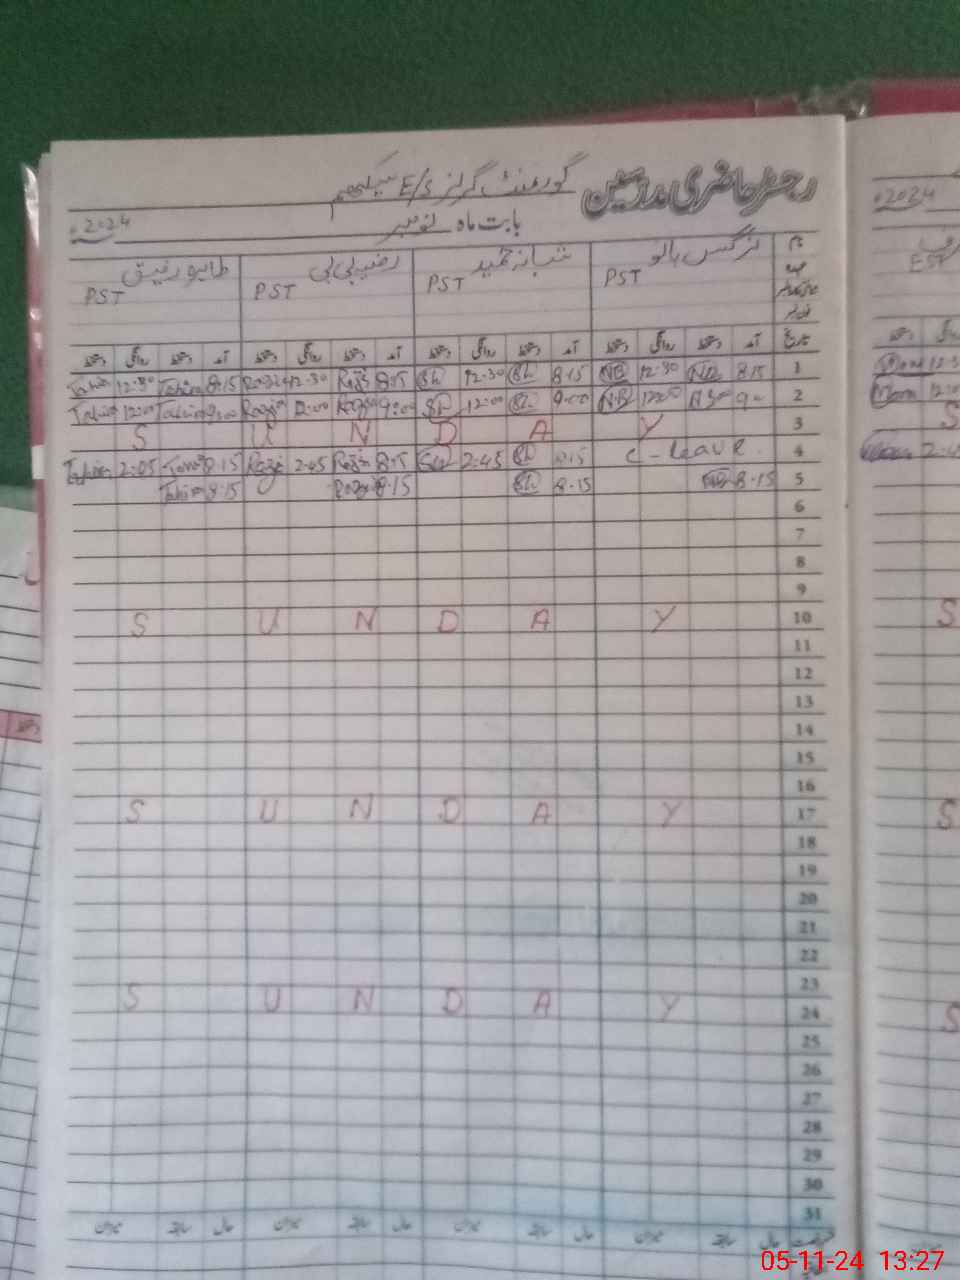 رجسٹر حاضری مدرسین گورنمنٹ گرلز E/S
بابت ماہ نومبر 2024ء
2024ء
نام نرگس بانو شبانہ حمید رضیہ بی بی طاہرہ رفیق
PST PST PST PST
EST
تاریخ آمد دستخط روانگی دستخط آمد دستخط روانگی دستخط آمد دستخط روانگی دستخط آمد دستخط روانگی دستخط
1 8:15 NB 12:30 NB 8:15 Sh 12:30 Sh 8:15 Razia 12:30 Razia 8:15 Tahira 12:30 Tahira
2 9:00 NB 12:00 NB 9:00 Sh 12:00 Sh 9:00 Razia 12:00 Razia 9:00 Tahira 12:00 Tahira
3 S U N D A Y
4 C-Leave 8:15 Sh 2:45 Sh 8:15 Razia 2:45 Razia 8:15 Tahira 2:45 Tahira
5 8:15 NB 8:15 Sh 8:15 Razia 8:15 Tahira
6
7
8
9
10 S U N D A Y
11
12
13
14
15
16
17 S U N D A Y
18
19
20
21
22
23
24 S U N D A Y
25
26
27
28
29
30
31
حال سابقہ میزان حال سابقہ میزان حال سابقہ میزان حال سابقہ میزان
05-11-24 13:27